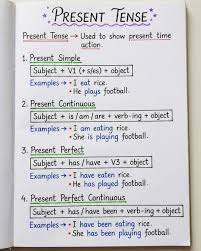 PRESENT TENSE
Present Tense → Used to show present time
action.
1. Present Simple
Subject + V1 (+s/es) + object
Examples → • I eat rice.
• He plays football.
2. Present Continuous
Subject + is/am/are + verb-ing + object
Examples → • I am eating rice.
• She is playing football.
3. Present Perfect
Subject + has/have + V3 + object
Examples → • I have eaten rice.
• He has played football.
4. Present Perfect Continuous
Subject + has/have been + verb-ing + object
Examples → • I have been eating rice.
• She has been playing football.